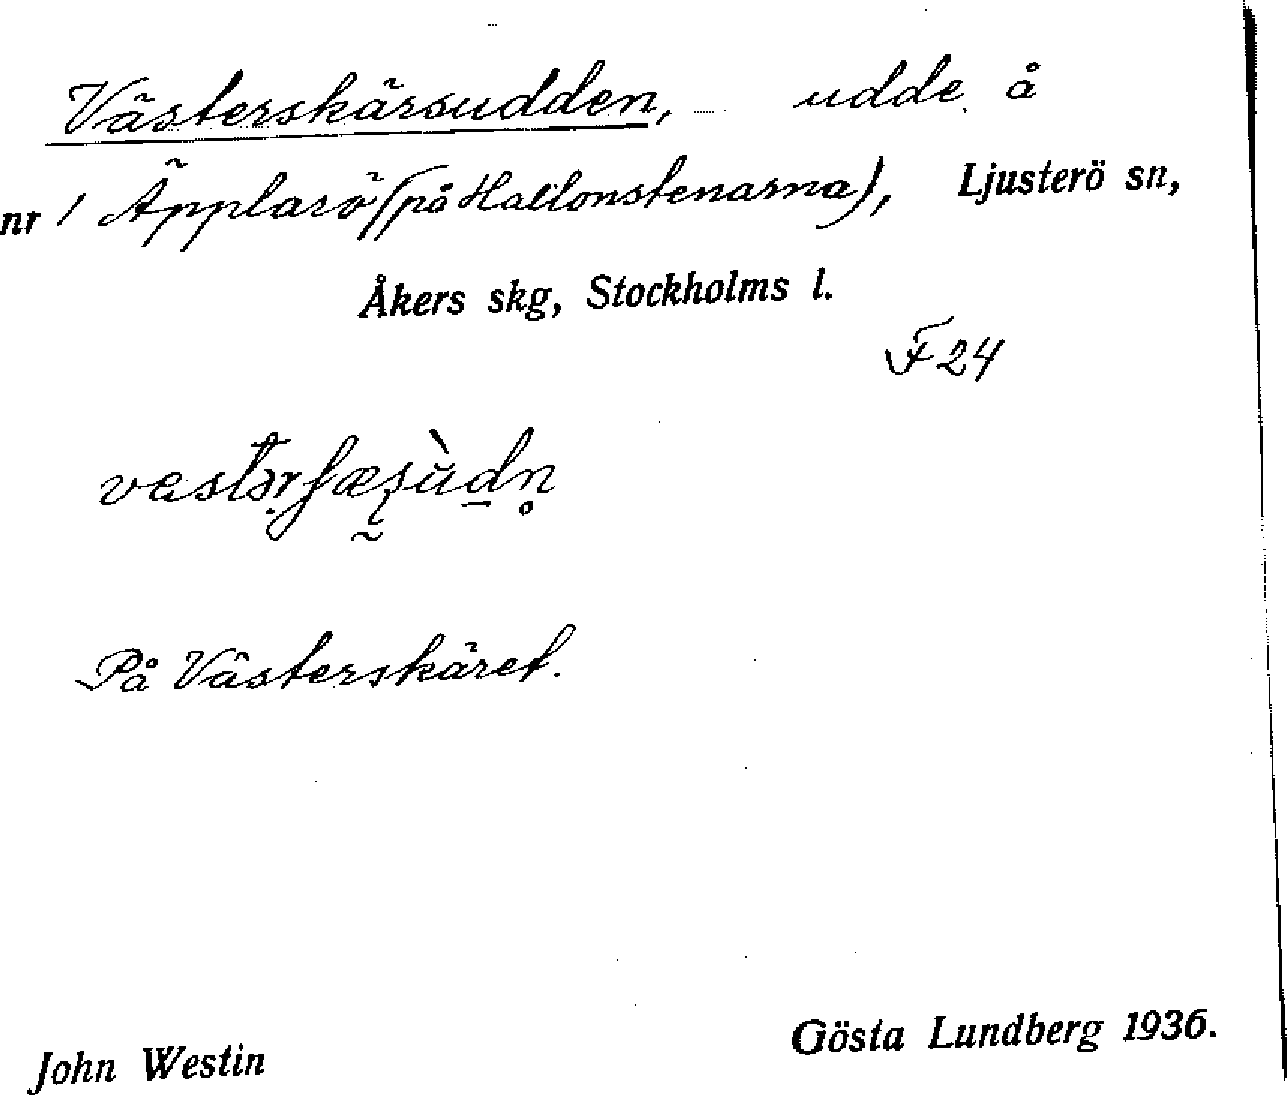 Västerskärsudden, udde å
nr 1 Äpplarö (på Hallonstenarna), Ljusterö sn,
Åkers skg, Stockholms l.
F 24
På Västerskäret.
John Westin
Gösta Lundberg 1936.